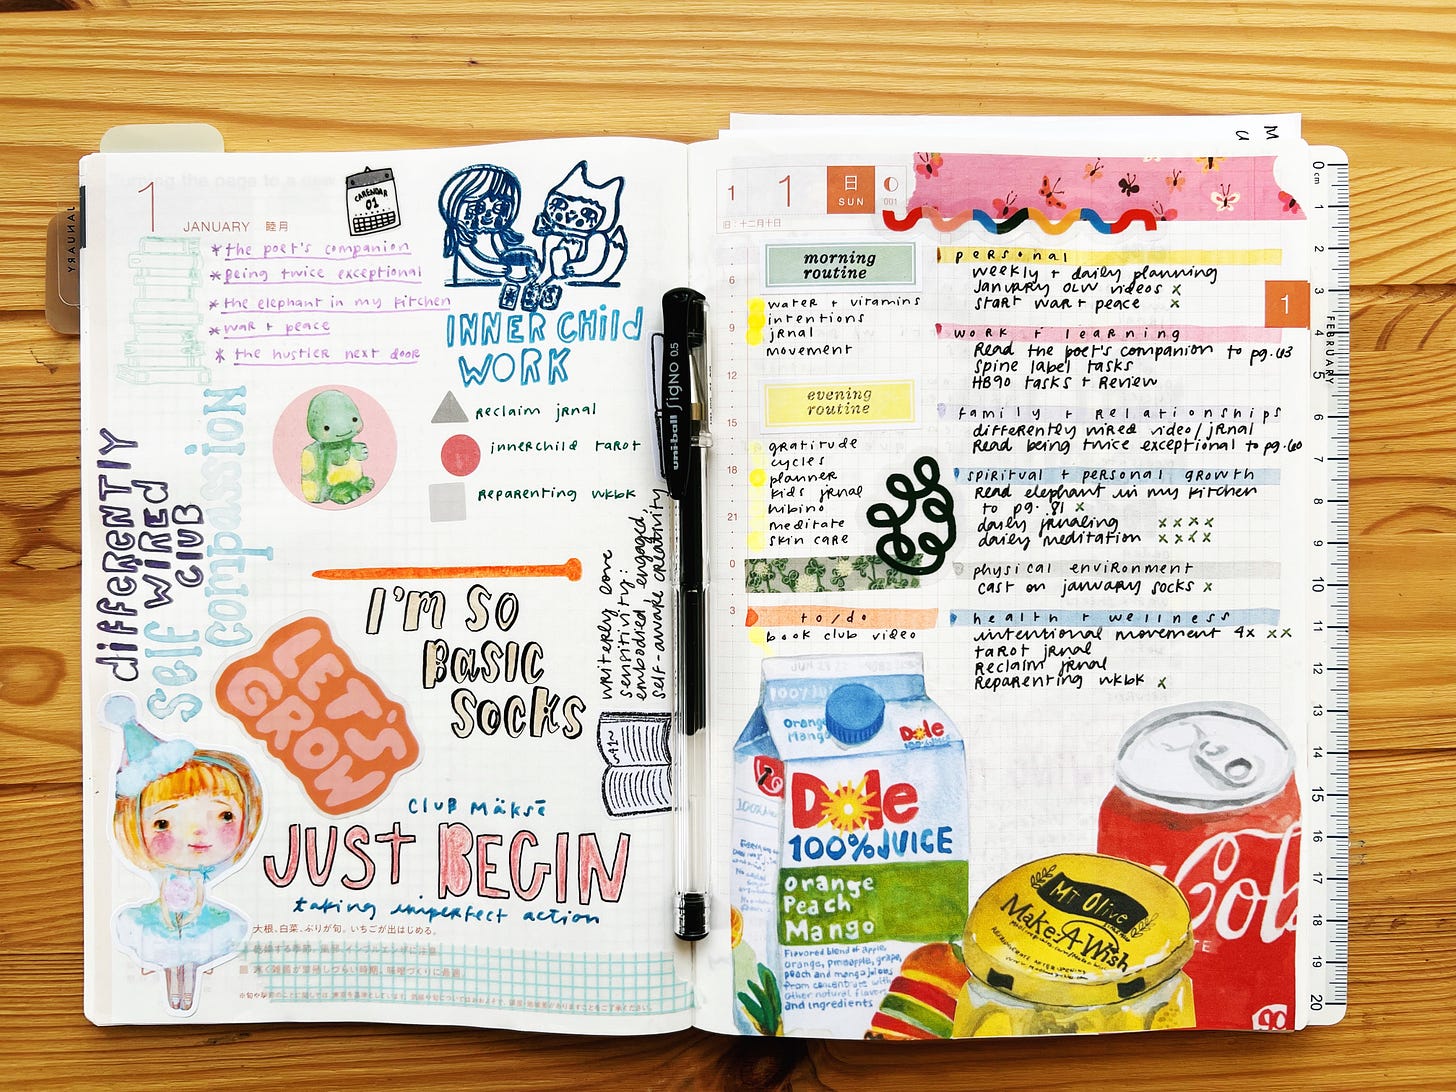 1
JANUARY 睦月
CALENDAR
01
JANUARY
* the poet's companion
* being twice exceptional
* the elephant in my kitchen
* war + peace
* the hustler next door
INNER CHILD
WORK
reclaim jrnal
innerchild tarot
reparenting wkbk
differently
wired
club
self
compassion
I'm so
basic
socks
LET'S
GROW
writerly core
sensitivity:
embodied, engaged,
self-aware creativity
~41~
club mäksē
JUST BEGIN
taking imperfect action
大根、白菜、ぶりが旬。いちごが出はじめる。
uni-ball Signo 0.5
M
U
1 1 日
SUN
001
旧:十二月十日
morning
routine
water + vitamins
intentions
jrnal
movement
evening
routine
gratitude
cycles
planner
kids jrnal
hibino
meditate
skin care
to/do
book club video
6
9
12
15
18
21
0
3
personal
weekly + daily planning
january olw videos x
start war + peace x
work + learning
Read the poet's companion to pg. 43
Spine label tasks
HB90 tasks + Review
family + relationships
differently wired video/jrnal
Read being twice exceptional to pg. 60
spiritual + personal growth
Read elephant in my kitchen
to pg. 81 x
daily jrnaling x x x x
daily meditation x x x x
physical environment
cast on january socks x
health + wellness
intentional movement 4x x x
tarot jrnal
Reclaim jrnal
Reparenting wkbk x
1
FEBRUARY
0 cm
1
2
3
4
5
6
7
8
9
10
11
12
13
14
15
16
17
18
19
20
Orange
Mango
Dole
100% JUICE
Dole
100% JUICE
Orange
Peach
Mango
Flavored blend of apple,
orange, pineapple, grape,
peach and mango juices
from concentrate with
other natural flavors
and ingredients
Mt Olive
Make-A-Wish
Col